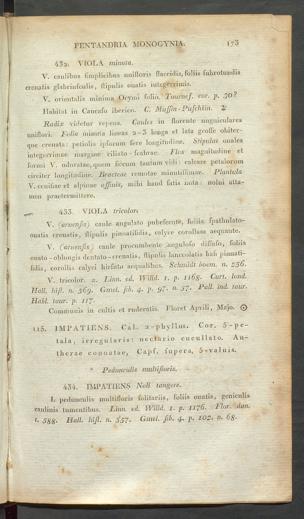 PENTANDRIA MONOGYNIA. 173
432. VIOLA minuta.
V. caulibus simplicibus unifloris flaccidis, foliis subrotundis
crenatis glabriusculis, stipulis ovatis integerrimis.
V. orientalis minima Ocymi folio. Tournef. cor. p. 30?
Habitat in Caucaso iberico. C. Mussin-Puschkin. ♃
Radix videtur repens. Caules in florente unguiculares
uniflori. Folia minuta lineas 2-3 longa et lata grosse obiter-
que crenata: petiolis ipsorum fere longitudine. Stipulae ovales
integerrimae margine ciliato-scabrae. Flos magnitudine et
forma V. odoratae, quem siccum tantum vidi: calcare petalorum
circiter longitudine. Bracteae remotae minutissimae. Plantula
V. cenisiae et alpinae affinis, mihi haud satis nota: nolui atta-
men praetermittere.
433. VIOLA tricolor.
V. (arvensis) caule angulato pubescente, foliis spathulato-
ovatis crenatis, stipulis pinnatifidis, calyce corollam aequante.
V. (arvensis) caule procumbente anguloso diffuso, foliis
ovato-oblongis dentato-crenatis, stipulis lanceolatis basi pinnati-
fidis, corollis calyci hirsuto aequalibus. Schmidt boem. n. 236.
V. tricolor. α. Linn. sp. Willd. 1. p. 1168. Curt. lond.
Hall. hist. n. 569. Gmel. sib. 4. p. 97. n. 57. Pall. ind. taur.
Habl. taur. p. 117.
Communis in cultis et ruderatis. Floret Aprili, Majo. ☉
115. IMPATIENS. Cal. 2-phyllus. Cor. 5-pe-
tala, irregularis: nectario cucullato. An-
therae connatae, Caps. supera, 5-valvis.
* Pedunculis multifloris.
434. IMPATIENS Noli tangere.
I. pedunculis multifloris solitariis, foliis ovatis, geniculis
caulinis tumentibus. Linn. sp. Willd. 1. p. 1176. Flor. dan.
t. 588. Hall. hist. n. 557. Gmel. sib. 4. p. 102. n. 68.